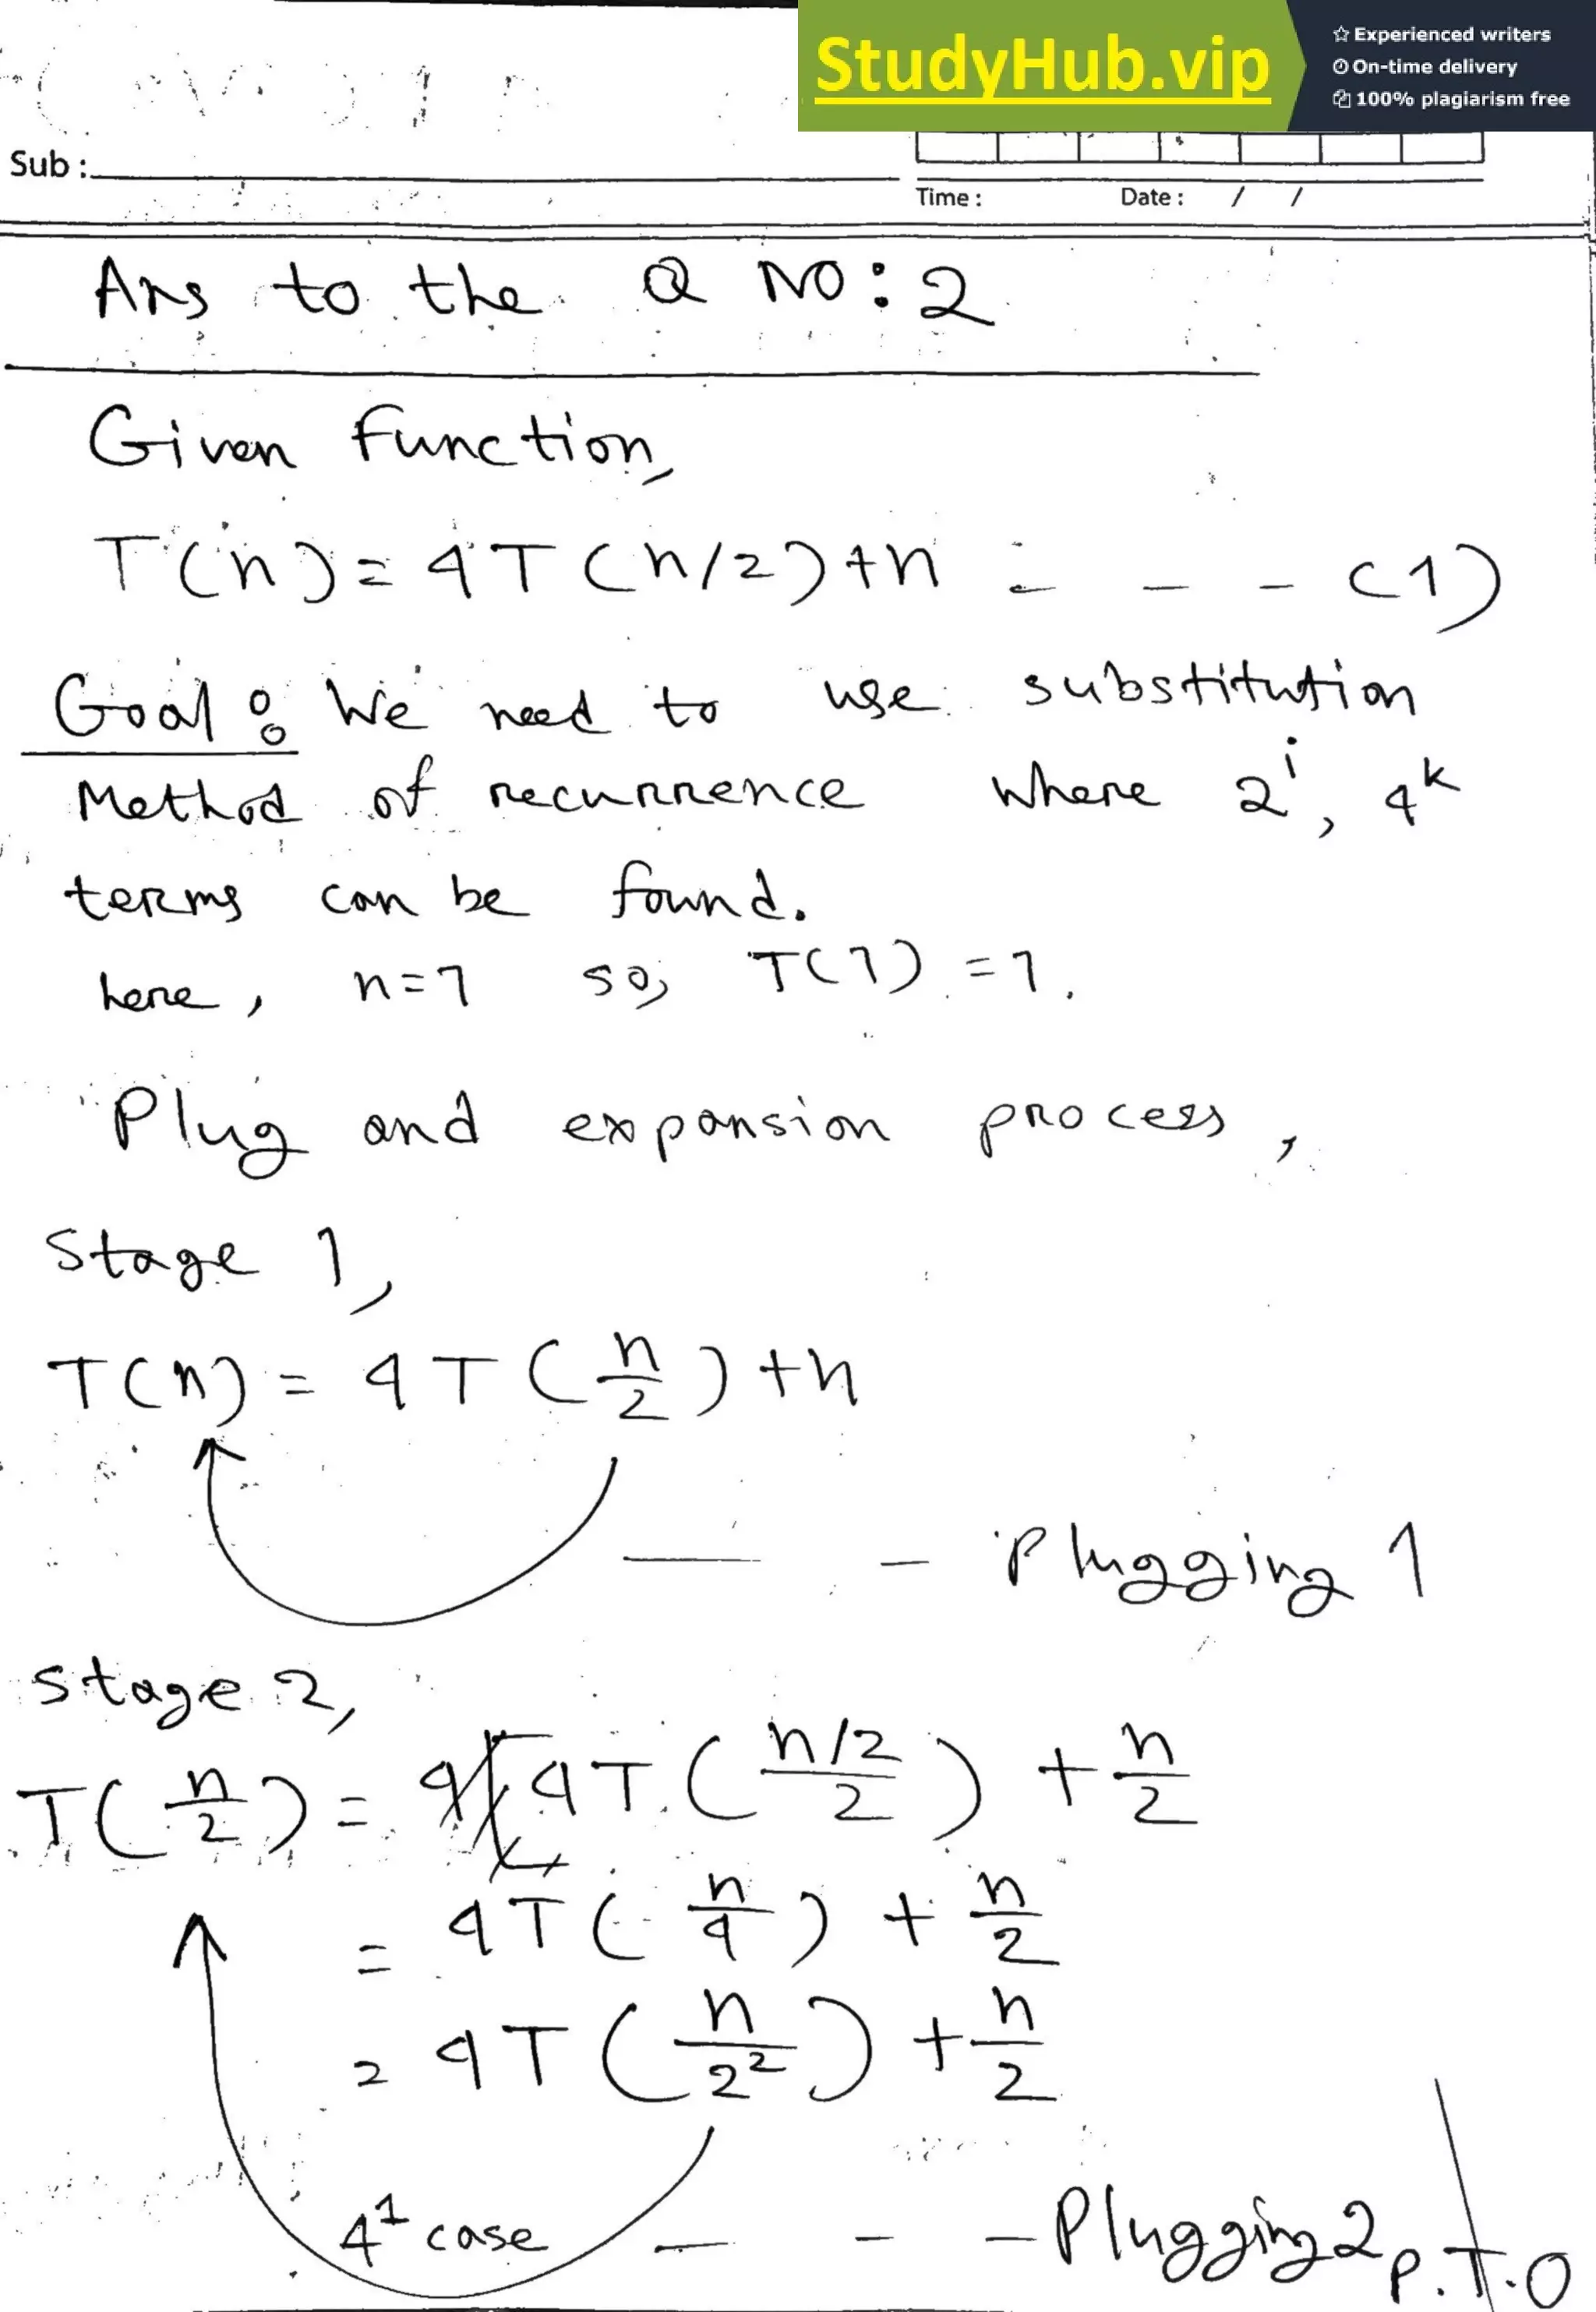 StudyHub.vip
☆ Experienced writers
On-time delivery
100% plagiarism free
Sub :
Time : Date : / /
Ans to the Q NO: 2
Given function,
T(n) = 4T(n/2)+n - - - (1)
Goal: We need to use substitution
Method of recurrence where 2^i, 4^k
terms can be found.
here, n=1 so, T(1) = 1.
Plug and expansion process,
Stage 1,
T(n) = 4T(n/2)+n
— - Plugging 1
Stage 2,
T(n/2) = 4[4T((n/2)/2) + n/2
= 4T(n/4) + n/2
= 4T(n/2^2) + n/2
4^1 case — - - Plugging 2
P.T.O